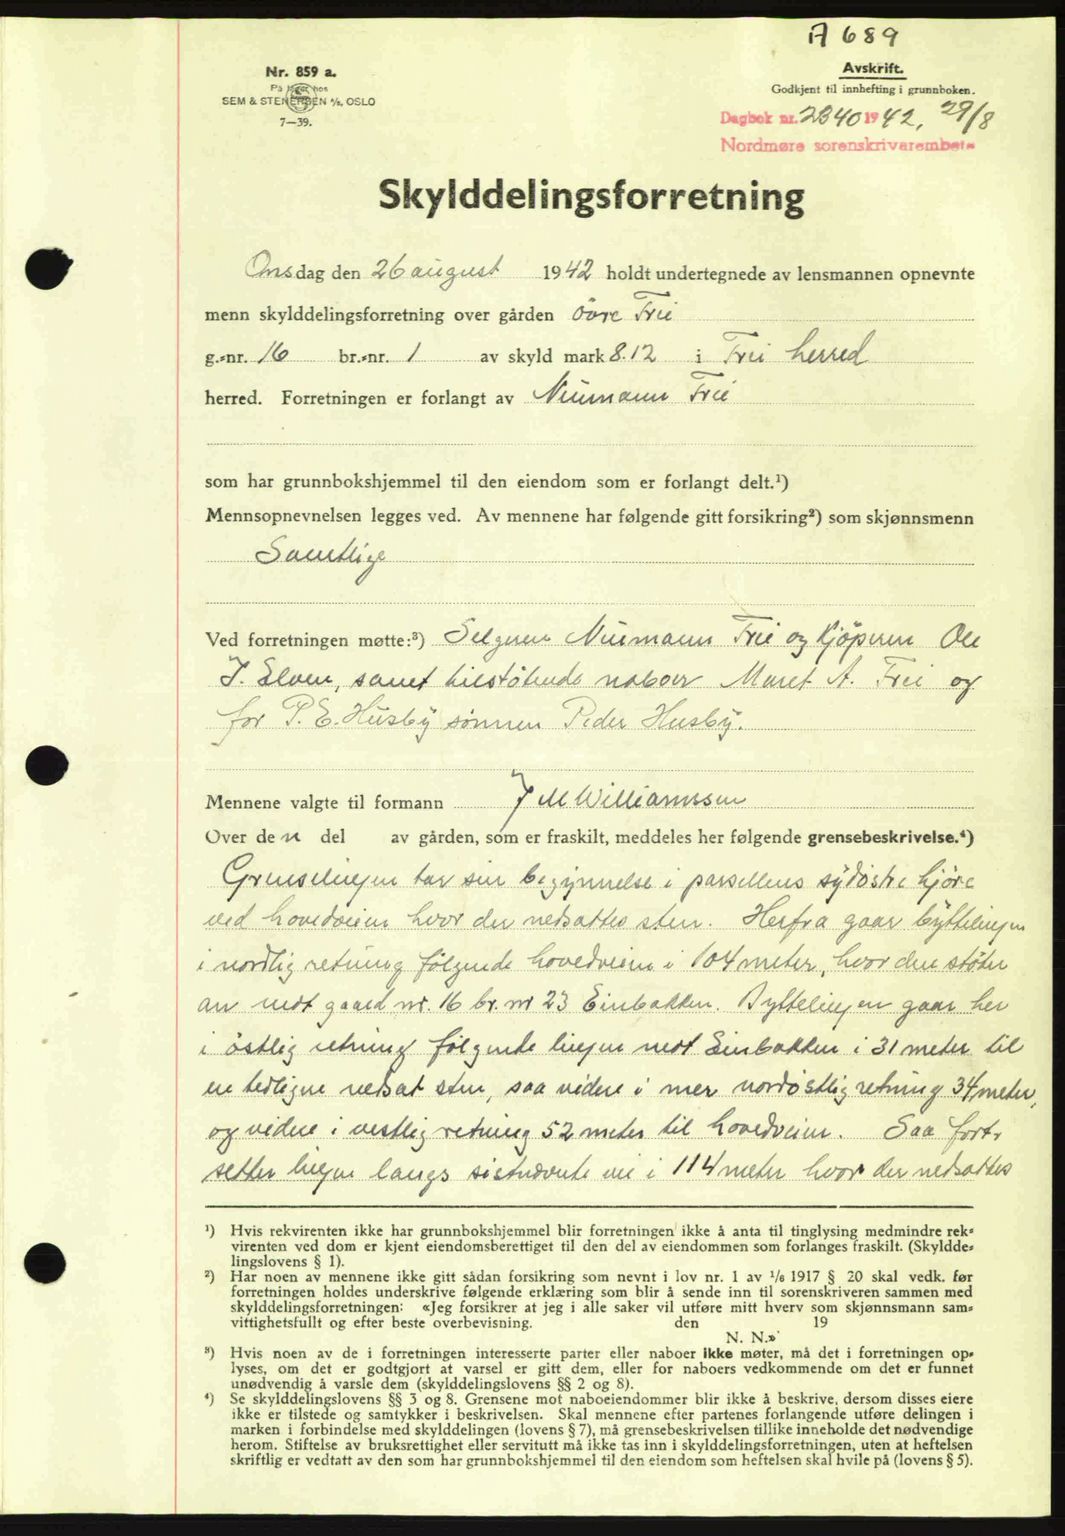 A 689
Nr. 859 a.
På lager hos
SEM & STENERSEN A/S, OSLO
7—39.
Avskrift.
Godkjent til innhefting i grunnboken.
Dagbok nr. 2340 1942, 29/8
Nordmøre sorenskrivarembete
Skylddelingsforretning
Onsdag den 26 august 1942 holdt undertegnede av lensmannen opnevnte
menn skylddelingsforretning over gården Övre Frei
g.-nr. 16 br.-nr. 1 av skyld mark 8.12 i Frei herred
herred. Forretningen er forlangt av Neumann Frei
som har grunnbokshjemmel til den eiendom som er forlangt delt.¹)
Mennsopnevnelsen legges ved. Av mennene har følgende gitt forsikring²) som skjønnsmenn
Samtlige
Ved forretningen møtte:³) Selgeren Neumann Frei og kjöperen Ole
J. Elven, samt tilstötende naboer Maret A. Frei og
for P. E. Husby sönnen Peder Husby.
Mennene valgte til formann J M Williamsen
Over den del av gården, som er fraskilt, meddeles her følgende grensebeskrivelse.⁴)
Grenselinjen tar sin begynnelse i parsellens sydöstre hjöre
ved hovedveien hvor der nedsattes sten. Herfra gaar byttelinjen
i nordlig retning fölgende hovedveien i 104 meter, hvor den stöter
an mot gaard nr. 16 br. nr 23 Einbakken. Byttelinjen gaar her
i östlig retning fölgende linjen mot Einbakken i 31 meter til
en tidligere nedsat sten, saa videre i mer nordöstlig retning 34 meter,
og videre i vestlig retning 52 meter til hovedveien. Saa fort-
setter linjen langs sistnevnte vei i 114 meter hvor der nedsattes
¹) Hvis rekvirenten ikke har grunnbokshjemmel blir forretningen ikke å anta til tinglysing medmindre rek-
virenten ved dom er kjent eiendomsberettiget til den del av eiendommen som forlanges fraskilt. (Skyldde-
lingslovens § 1).
²) Har noen av mennene ikke gitt sådan forsikring som nevnt i lov nr. 1 av 1/6 1917 § 20 skal vedk. før
forretningen holdes underskrive følgende erklæring som blir å sende inn til sorenskriveren sammen med
skylddelingsforretningen: «Jeg forsikrer at jeg i alle saker vil utføre mitt hverv som skjønnsmann sam-
vittighetsfullt og efter beste overbevisning. den 19
N. N.»
³) Hvis noen av de i forretningen interesserte parter eller naboer ikke møter, må det i forretningen op-
lyses, om det er godtgjort at varsel er gitt dem, eller for naboers vedkommende om det er funnet
unødvendig å varsle dem (skylddelingslovens §§ 2 og 8).
⁴) Se skylddelingslovens §§ 3 og 8. Grensene mot naboeiendommer blir ikke å beskrive, dersom disses eiere
ikke er tilstede og samtykker i beskrivelsen. Skal mennene efter partenes forlangende utføre delingen i
marken i forbindelse med skylddelingen (lovens § 7), må grensebeskrivelsen tillike inneholde det nødvendige
herom. Stiftelse av bruksrettighet eller servitutt må ikke tas inn i skylddelingsforretningen, uten at heftelsen
skriftlig er vedtatt av den som har grunnbokshjemmel til den eiendom som heftelsen skal hvile på (lovens § 5).